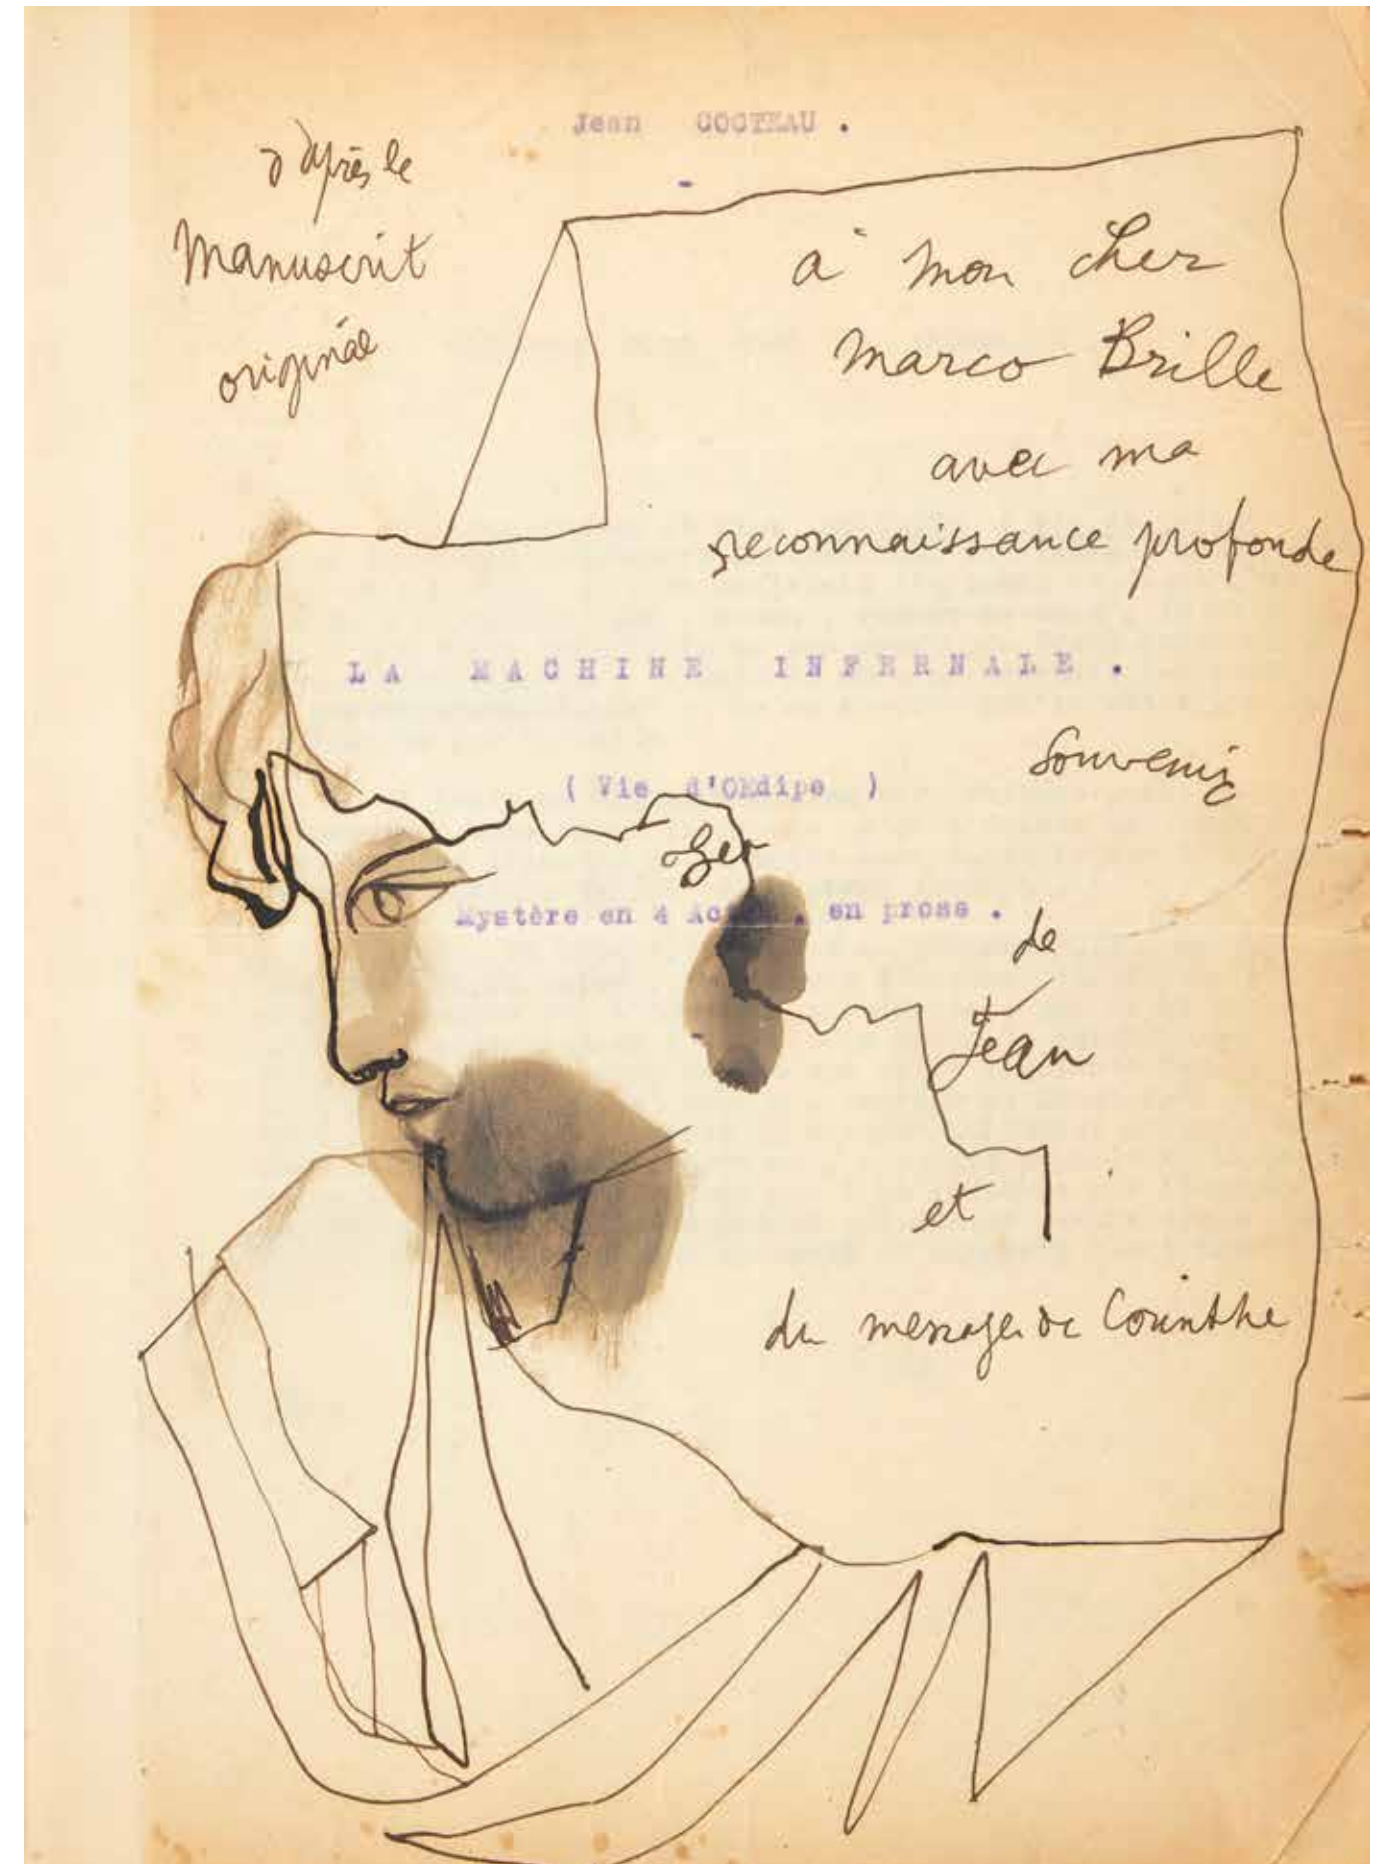 Jean COCTEAU .
-
d'après le
Manuscrit
original
à mon cher
Marco Brille
avec ma
reconnaissance profonde
LA MACHINE INFERNALE .
Souvenir
( Vie d'OEdipe )
Mystère en 4 Actes . en prose .
de
Jean
et
du messager de Corinthe